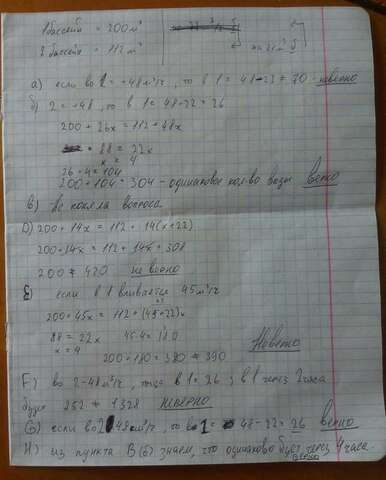 1 бассейн = 200 м³
2 бассейн = 112 м³
на 22 м³ б
а) если во 2 = 48 м³/ч, то в 1 = 48-22 ≠ 70 - неверно
б) 2 = 48, то в 1 = 48-22 = 26
200 + 26x = 112 + 48x
88 = 22x
x = 4
26 · 4 = 104
200 + 104 = 304 - одинаковое кол-во воды верно
в) Не поняла вопроса
D) 200 + 14x = 112 + 14(x+22)
200 + 14x = 112 + 14x + 308
200 ≠ 420 неверно
если в 1 вливается 45 м³/ч
200 + 45x = 112 + (45+22)x
88 = 22x 45·4 = 180
x = 4
200 + 180 = 380 ≠ 390 Неверно
F) во 2 - 48 м³/ч, тогда в 1 = 26 ; в 1 через 2 часа
будет 252 ≠ 1328 неверно
G) если во 2 48 м³/ч, то во 1 = 48-22 = 26 верно
H) из пункта B(б) знаем, что одинаково будет через 4 часа.
верно